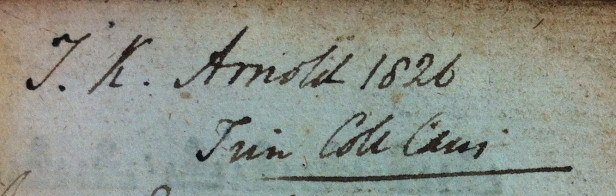 T. K. Arnold 1826
Trin Coll Cam